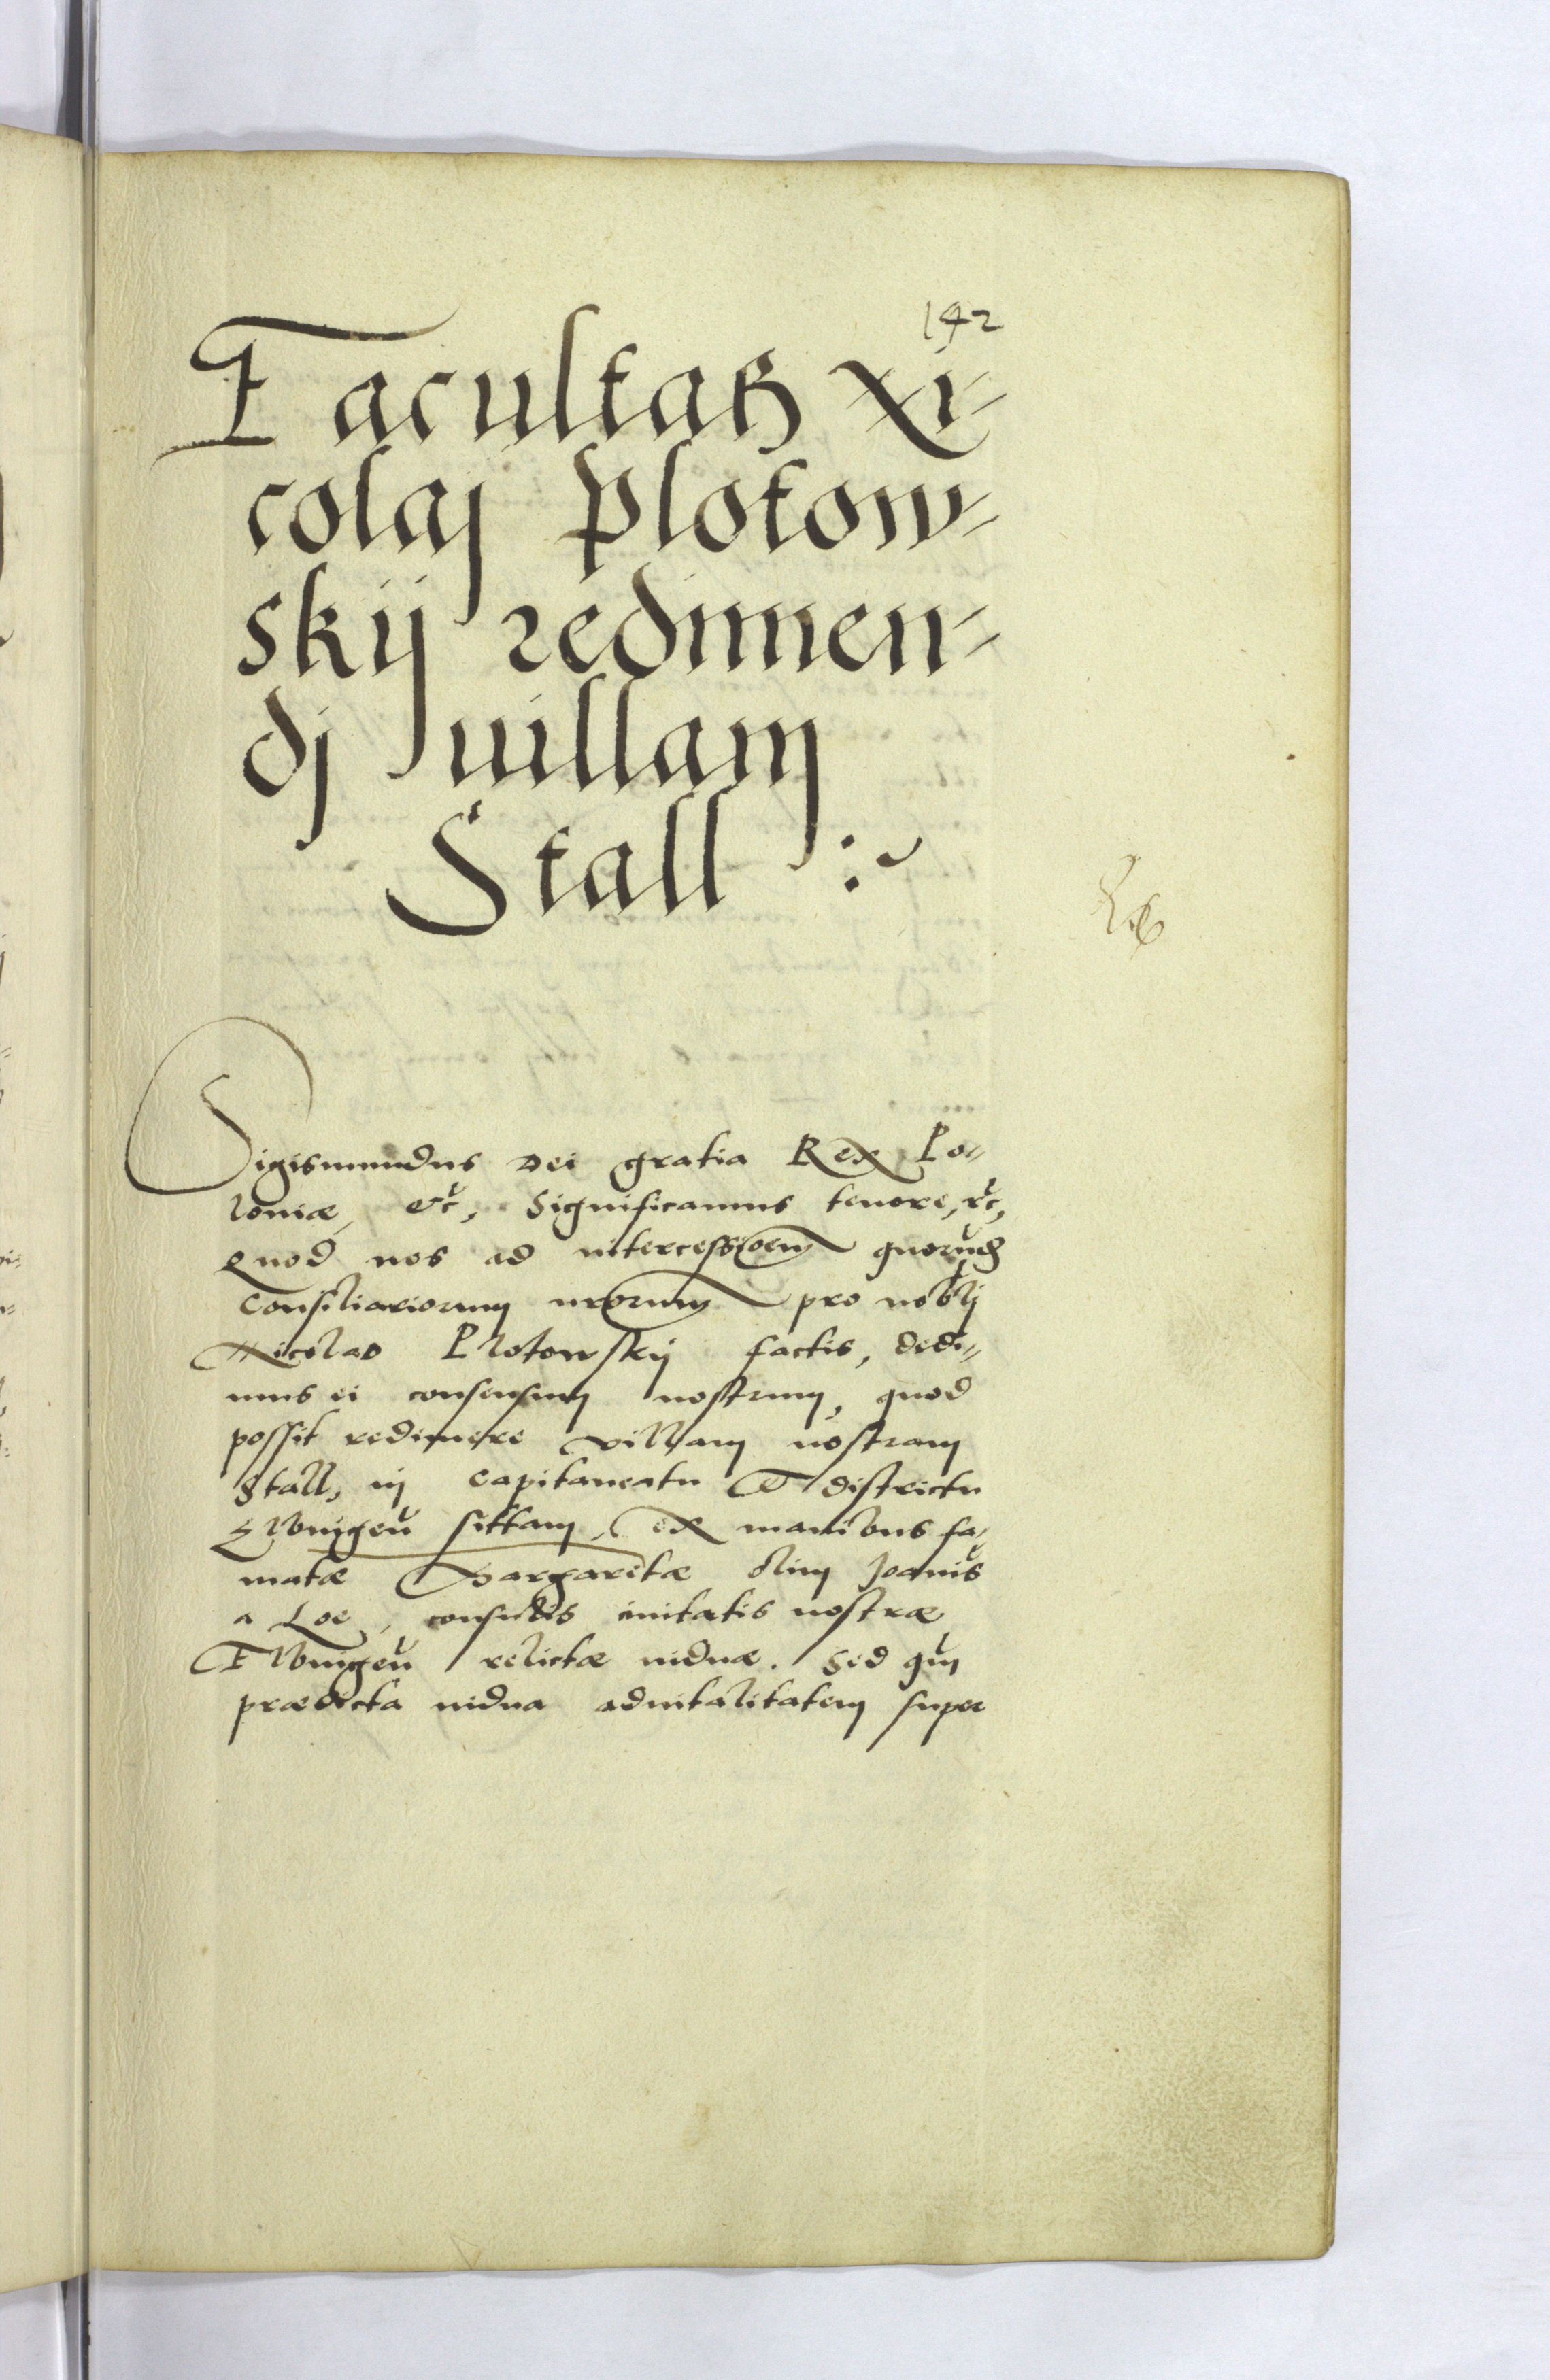 142
Facultas Ni-
colaj Plotow-
skij redimen-
dj uillam
Stall :~
Sigismundus Dei gratia Rex Po-
loniæ, etc, Significamus tenore, etc,
Quod nos ad intercessioem quorund
Consiliariorum nrorum pro nobli
Nicolao Plotowskij factis, dedi-
mus ei consensum nostrum, quod
possit redimere villam nostram
Stall, in capitaneatu et districtu
Elbingen sittam, ex manibus fa-
matæ Margaretæ olim Joanis
a Loe, consulis ciuitatis nostræ
Elbingen relictæ uiduæ. Sed qum
prædicta uidua aduitalitatem super